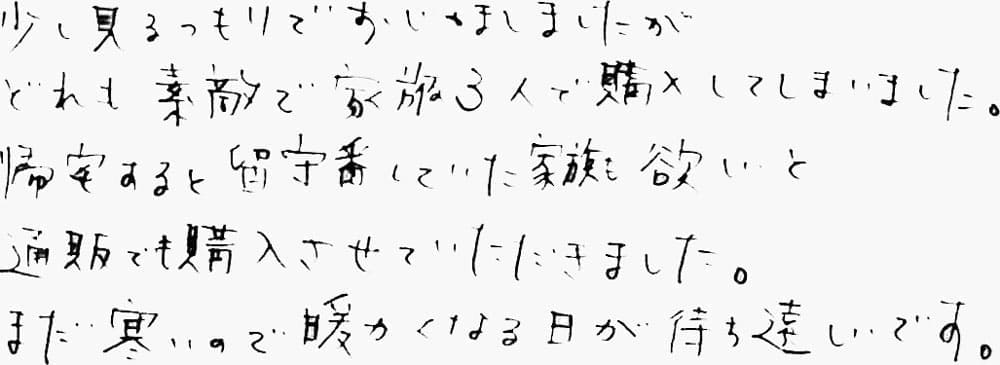 少し見るつもりでおじゃましましたが
どれも素敵で家族3人で購入してしまいました。
帰宅すると留守番していた家族も欲しいと
通販でも購入させていただきました。
まだ寒いので暖かくなる日が待ち遠しいです。